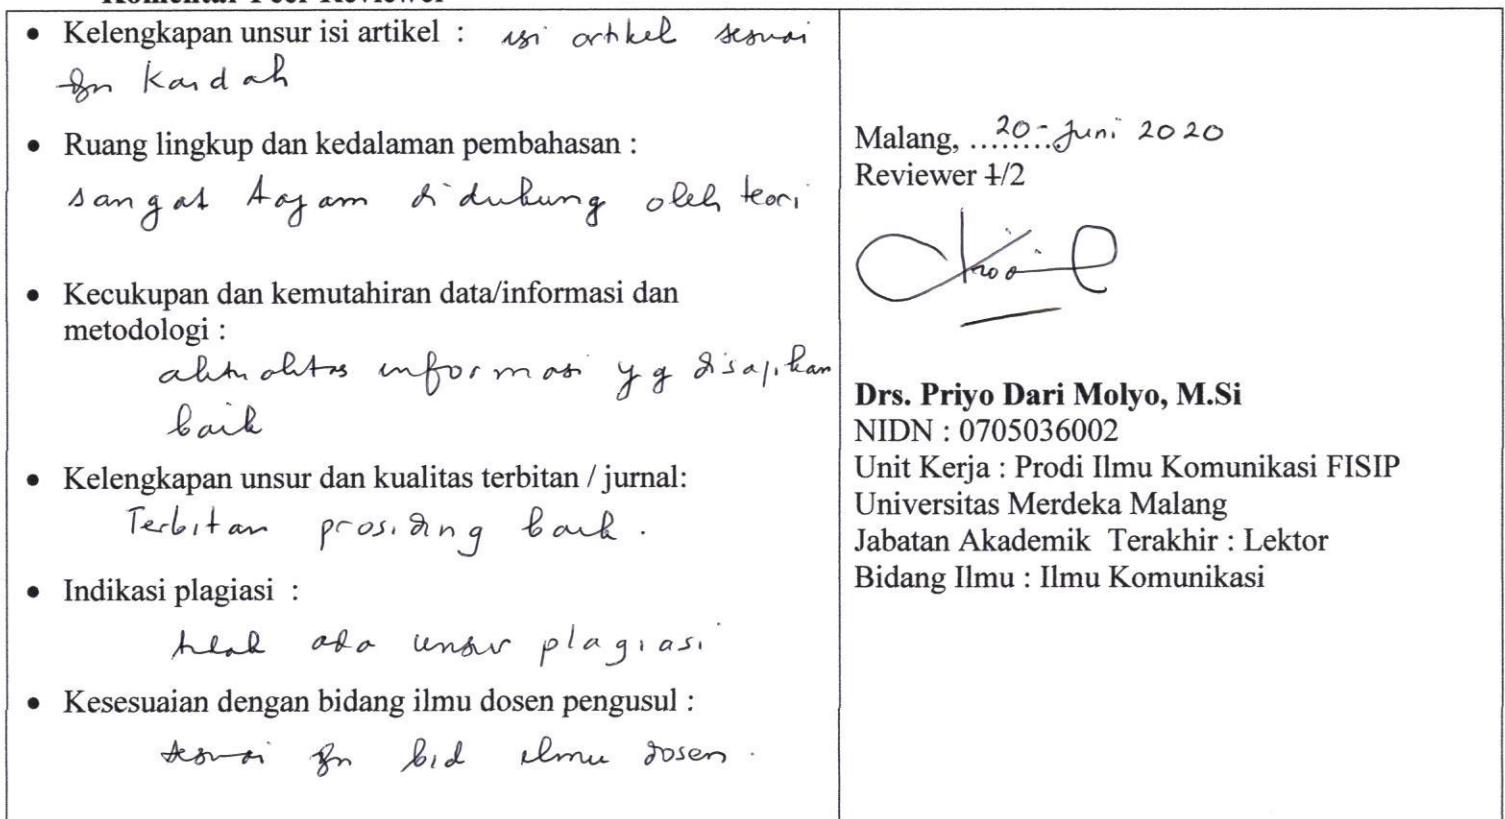 Komentar Peer Reviewer
• Kelengkapan unsur isi artikel : isi artikel sesuai
dgn Kaidah
• Ruang lingkup dan kedalaman pembahasan :
sangat tajam didukung oleh teori
• Kecukupan dan kemutahiran data/informasi dan
metodologi :
aktualitas informasi yg disajikan
baik
• Kelengkapan unsur dan kualitas terbitan / jurnal:
Terbitan prosiding baik.
• Indikasi plagiasi :
tidak ada unsur plagiasi
• Kesesuaian dengan bidang ilmu dosen pengusul :
sesuai dgn bid ilmu dosen.
Malang, ........20-Juni 2020
Reviewer 1/2
Drs. Priyo Dari Molyo, M.Si
NIDN : 0705036002
Unit Kerja : Prodi Ilmu Komunikasi FISIP
Universitas Merdeka Malang
Jabatan Akademik Terakhir : Lektor
Bidang Ilmu : Ilmu Komunikasi